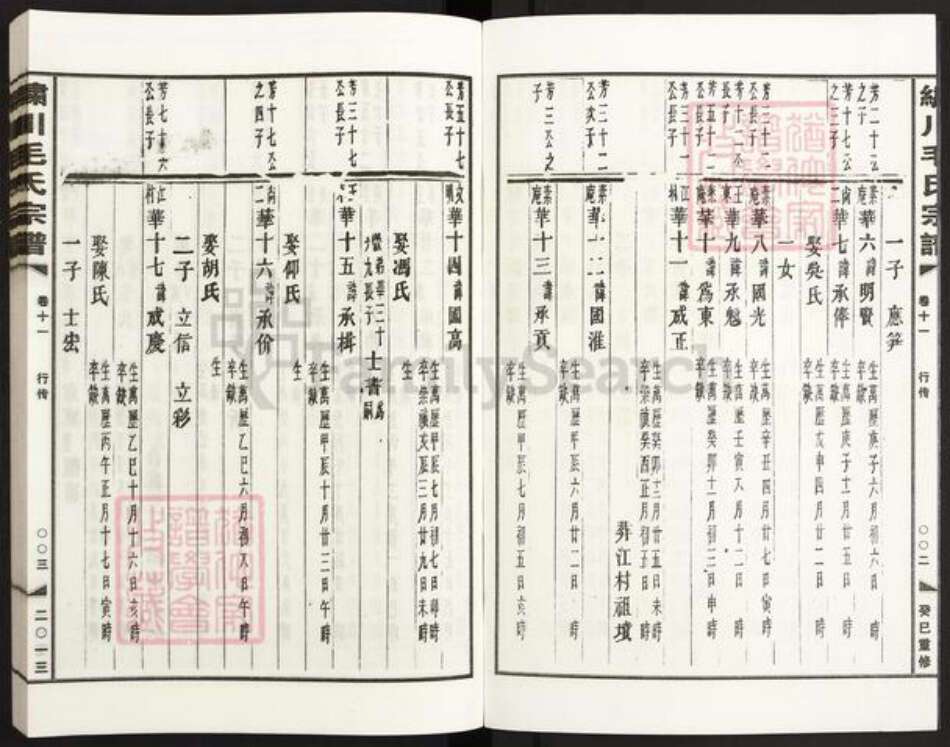 毛氏宗譜
卷十一
行傳
〇〇二
癸巳重修
一子 應笋
芳二十公之子
華六諱明賢
生萬歷庚子六月初六日 時
卒缺
芳十七公之三子
華七諱承俸
生萬歷庚子十一月廿五日 時
卒缺
娶吳氏
生萬歷戊申四月廿二日 時
卒缺
一女
芳三十二公長子
華八諱國光
生萬歷辛丑四月廿七日寅時
卒缺
芳十二公長子
華九諱承魁
生萬歷壬寅又月十二日 時
卒缺
芳五十二公長子
華十諱為東
生萬歷癸卯十一月初三日申時
卒缺
芳三十一公長子
華十一諱成正
生萬歷癸卯十二月廿五日未時
卒崇禎癸酉正月初五日 時
葬江村祖墳
芳三十二公次子
華十二諱國淮
生萬歷甲辰六月廿二日 時
卒缺
芳三公之子
華十三諱承貢
生萬歷甲辰七月初五日亥時
卒缺
芳五十七公長子
華十四諱國高
生萬歷甲辰七月初七日卯時
卒崇禎庚辰三月廿九日未時
娶馮氏
生
卒缺
士書為嗣
芳三十七公長子
華十五諱承楫
生萬歷甲辰十月廿三日午時
卒缺
娶仰氏
生
芳十七公之四子
華十六諱承价
生萬歷乙巳六月初又日午時
卒缺
娶胡氏
生
二子 立信 立彩
公長子
華十七諱成慶
生萬歷乙巳十月十六日亥時
卒缺
娶陳氏
生萬歷丙午正月十七日寅時
卒缺
一子 士宏
繡川毛氏宗譜
卷十一
行傳
〇〇三
二〇一三
FamilySearch